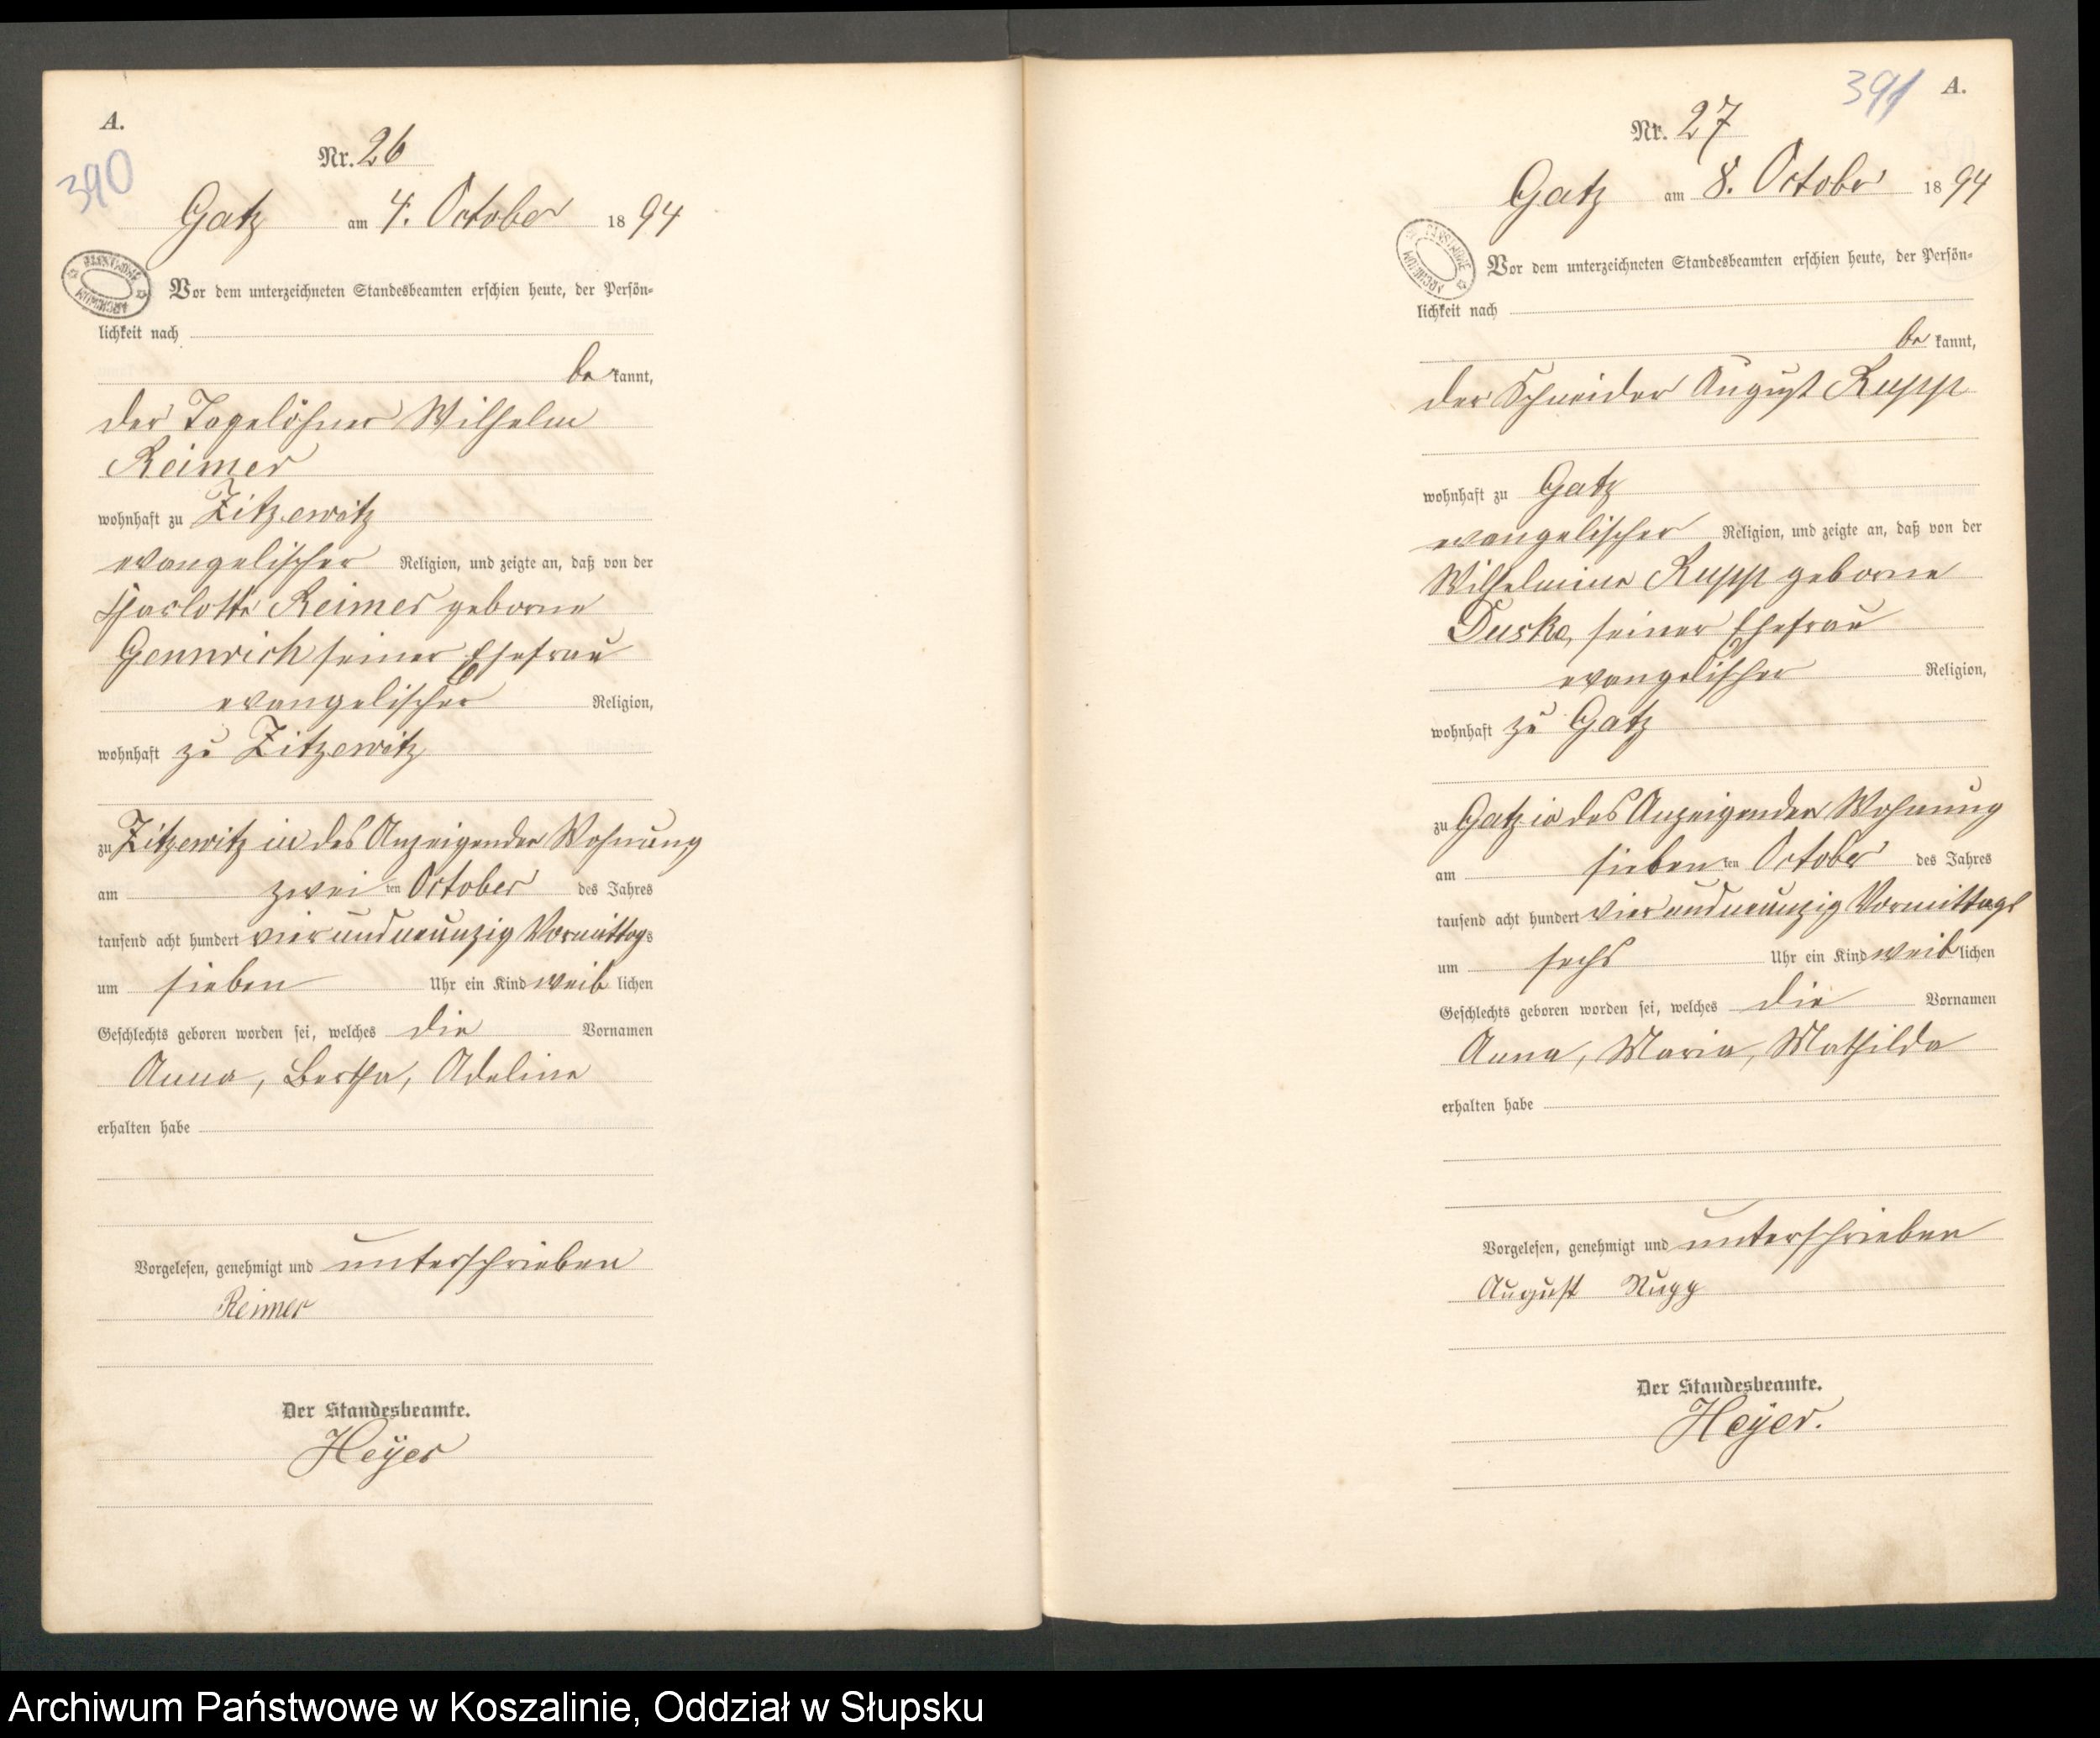 A.
390
Nr. 26
Gatz am 4. October 1894
Vor dem unterzeichneten Standesbeamten erschien heute, der Persön-
lichkeit nach
be kannt,
der Tagelöhner Wilhelm
Reimer
wohnhaft zu Zitzewitz
evangelischer Religion, und zeigte an, daß von der
Charlotte Reimer geborne
Gennrich seiner Ehefrau
evangelischer Religion,
wohnhaft zu Zitzewitz
zu Zitzewitz in des Anzeigenden Wohnung
am zwei ten October des Jahres
tausend acht hundert vier und neunzig Vormittags
um sieben Uhr ein Kind weib lichen
Geschlechts geboren worden sei, welches die Vornamen
Anna, Bertha, Adeline
erhalten habe
Vorgelesen, genehmigt und unterschrieben
Reimer
Der Standesbeamte.
Heÿer
391 A.
Nr. 27
Gatz am 8. October 1894
ARCHIWUM PAŃSTWOWE
Vor dem unterzeichneten Standesbeamten erschien heute, der Persön-
lichkeit nach
be kannt,
der Schneider August Rupp
wohnhaft zu Gatz
evangelischer Religion, und zeigte an, daß von der
Wilhelmine Rupp geborne
Duske, seiner Ehefrau
evangelischer Religion,
wohnhaft zu Gatz
zu Gatz in des Anzeigenden Wohnung
am sieben ten October des Jahres
tausend acht hundert vier und neunzig Vormittags
um sechs Uhr ein Kind weib lichen
Geschlechts geboren worden sei, welches die Vornamen
Anna, Maria, Mathilda
erhalten habe
Vorgelesen, genehmigt und unterschrieben
August Rupp
Der Standesbeamte.
Heÿer.
Archiwum Państwowe w Koszalinie, Oddział w Słupsku